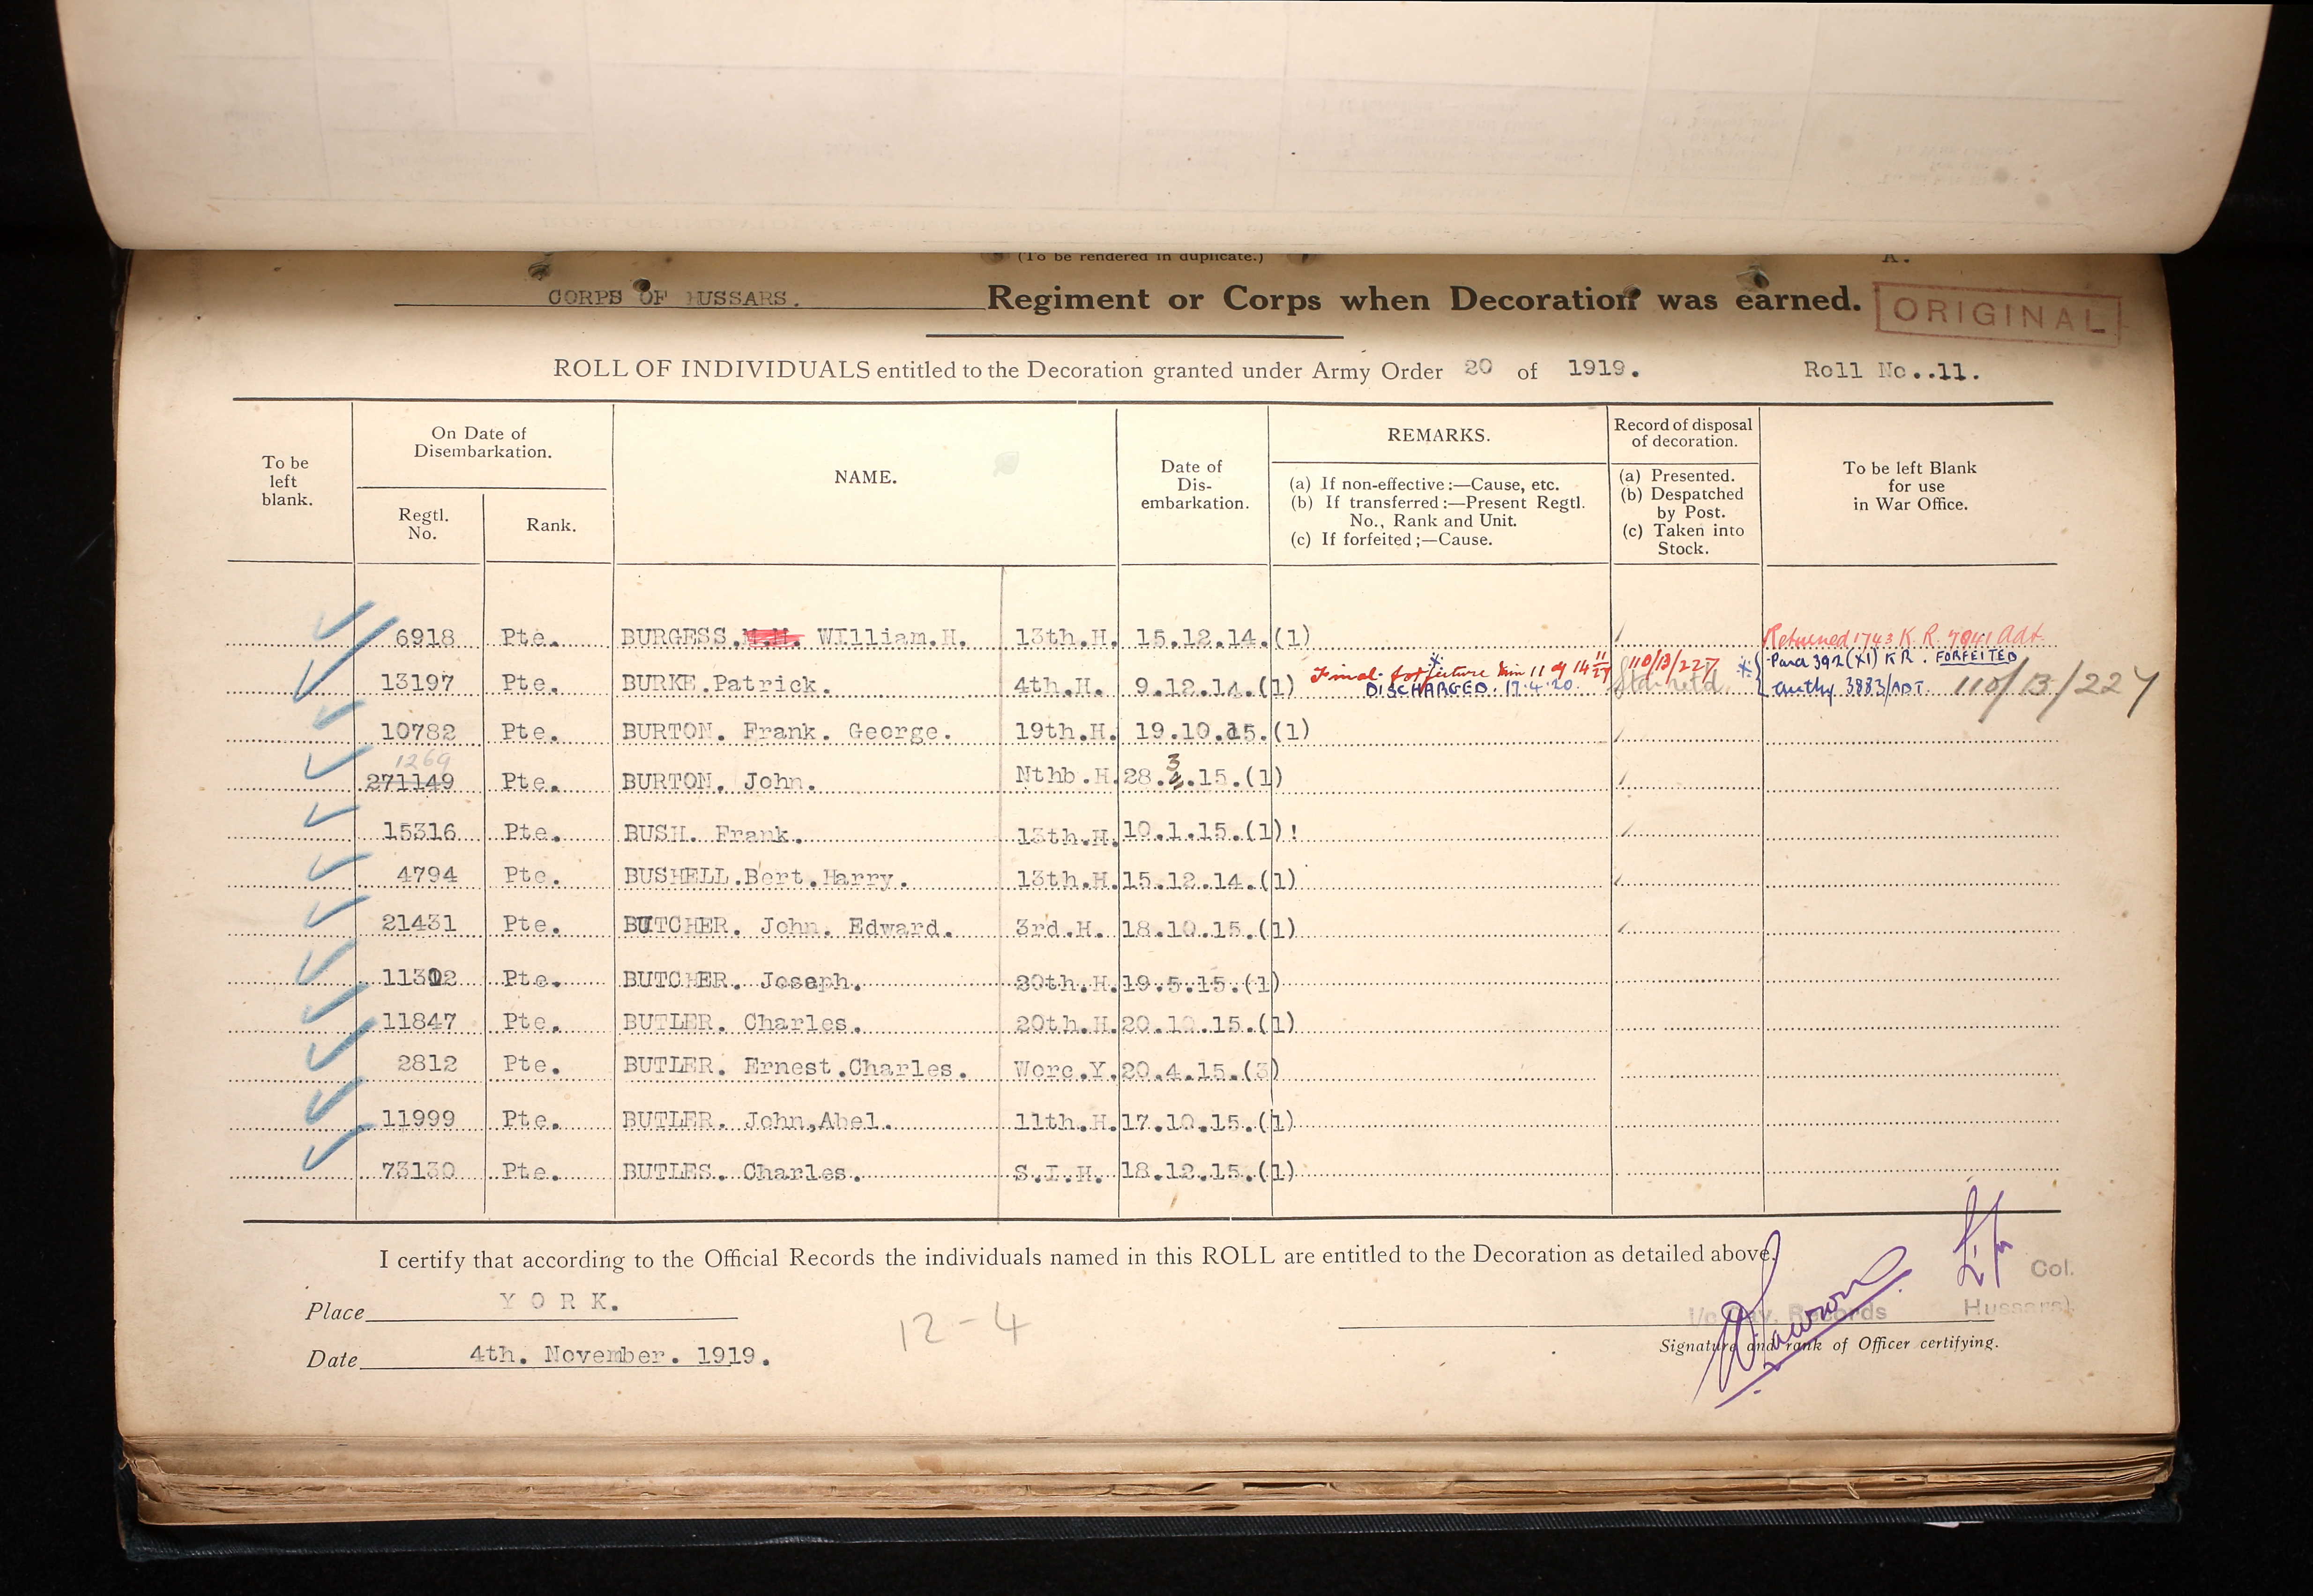 (To be rendered in duplicate.) A.
CORPS OF HUSSARS. Regiment or Corps when Decoration was earned. ORIGINAL
ROLL OF INDIVIDUALS entitled to the Decoration granted under Army Order 20 of 1919. Roll No..11.
To be left blank.
On Date of Disembarkation.
Regtl. No.
Rank.
NAME.
Date of Dis-embarkation.
REMARKS.
(a) If non-effective:—Cause, etc.
(b) If transferred:—Present Regtl. No., Rank and Unit.
(c) If forfeited;—Cause.
Record of disposal of decoration.
(a) Presented.
(b) Despatched by Post.
(c) Taken into Stock.
To be left Blank for use in War Office.
6918 Pte. BURGESS. WIlliam.H. 13th.H. 15.12.14.(1) Returned 1743 K.R. 7041 Adt.
13197 Pte. BURKE.Patrick. 4th.H. 9.12.14.(1) Final forfeiture Min 11 of 14 11/27 110/13/227 Para 392 (XI) KR. FORFEITED
DISCHARGED. 17.4.20. authy 3883/ADT. 110/13/227
10782 Pte. BURTON. Frank. George. 19th.H. 19.10.15.(1)
1269
271149 Pte. BURTON. John. Nthb.H. 28.3.15.(1)
15316 Pte. BUSH. Frank. 13th.H. 10.1.15.(1)!
4794 Pte. BUSHELL.Bert.Harry. 13th.H. 15.12.14.(1)
21431 Pte. BUTCHER. John. Edward. 3rd.H. 18.10.15.(1)
11302 Pte. BUTCHER. Joseph. 20th.H. 19.5.15.(1)
11847 Pte. BUTLER. Charles. 20th.H. 20.10.15.(1)
2812 Pte. BUTLER. Ernest.Charles. Worc.Y. 20.4.15.(3)
11999 Pte. BUTLER. John,Abel. 11th.H. 17.10.15.(1)
73130 Pte. BUTLES. Charles. S.I.H. 18.12.15.(1)
I certify that according to the Official Records the individuals named in this ROLL are entitled to the Decoration as detailed above.
Col.
Place YORK. I/c Cav. Records Hussars).
12-4
Signature and rank of Officer certifying.
Date 4th. November. 1919.